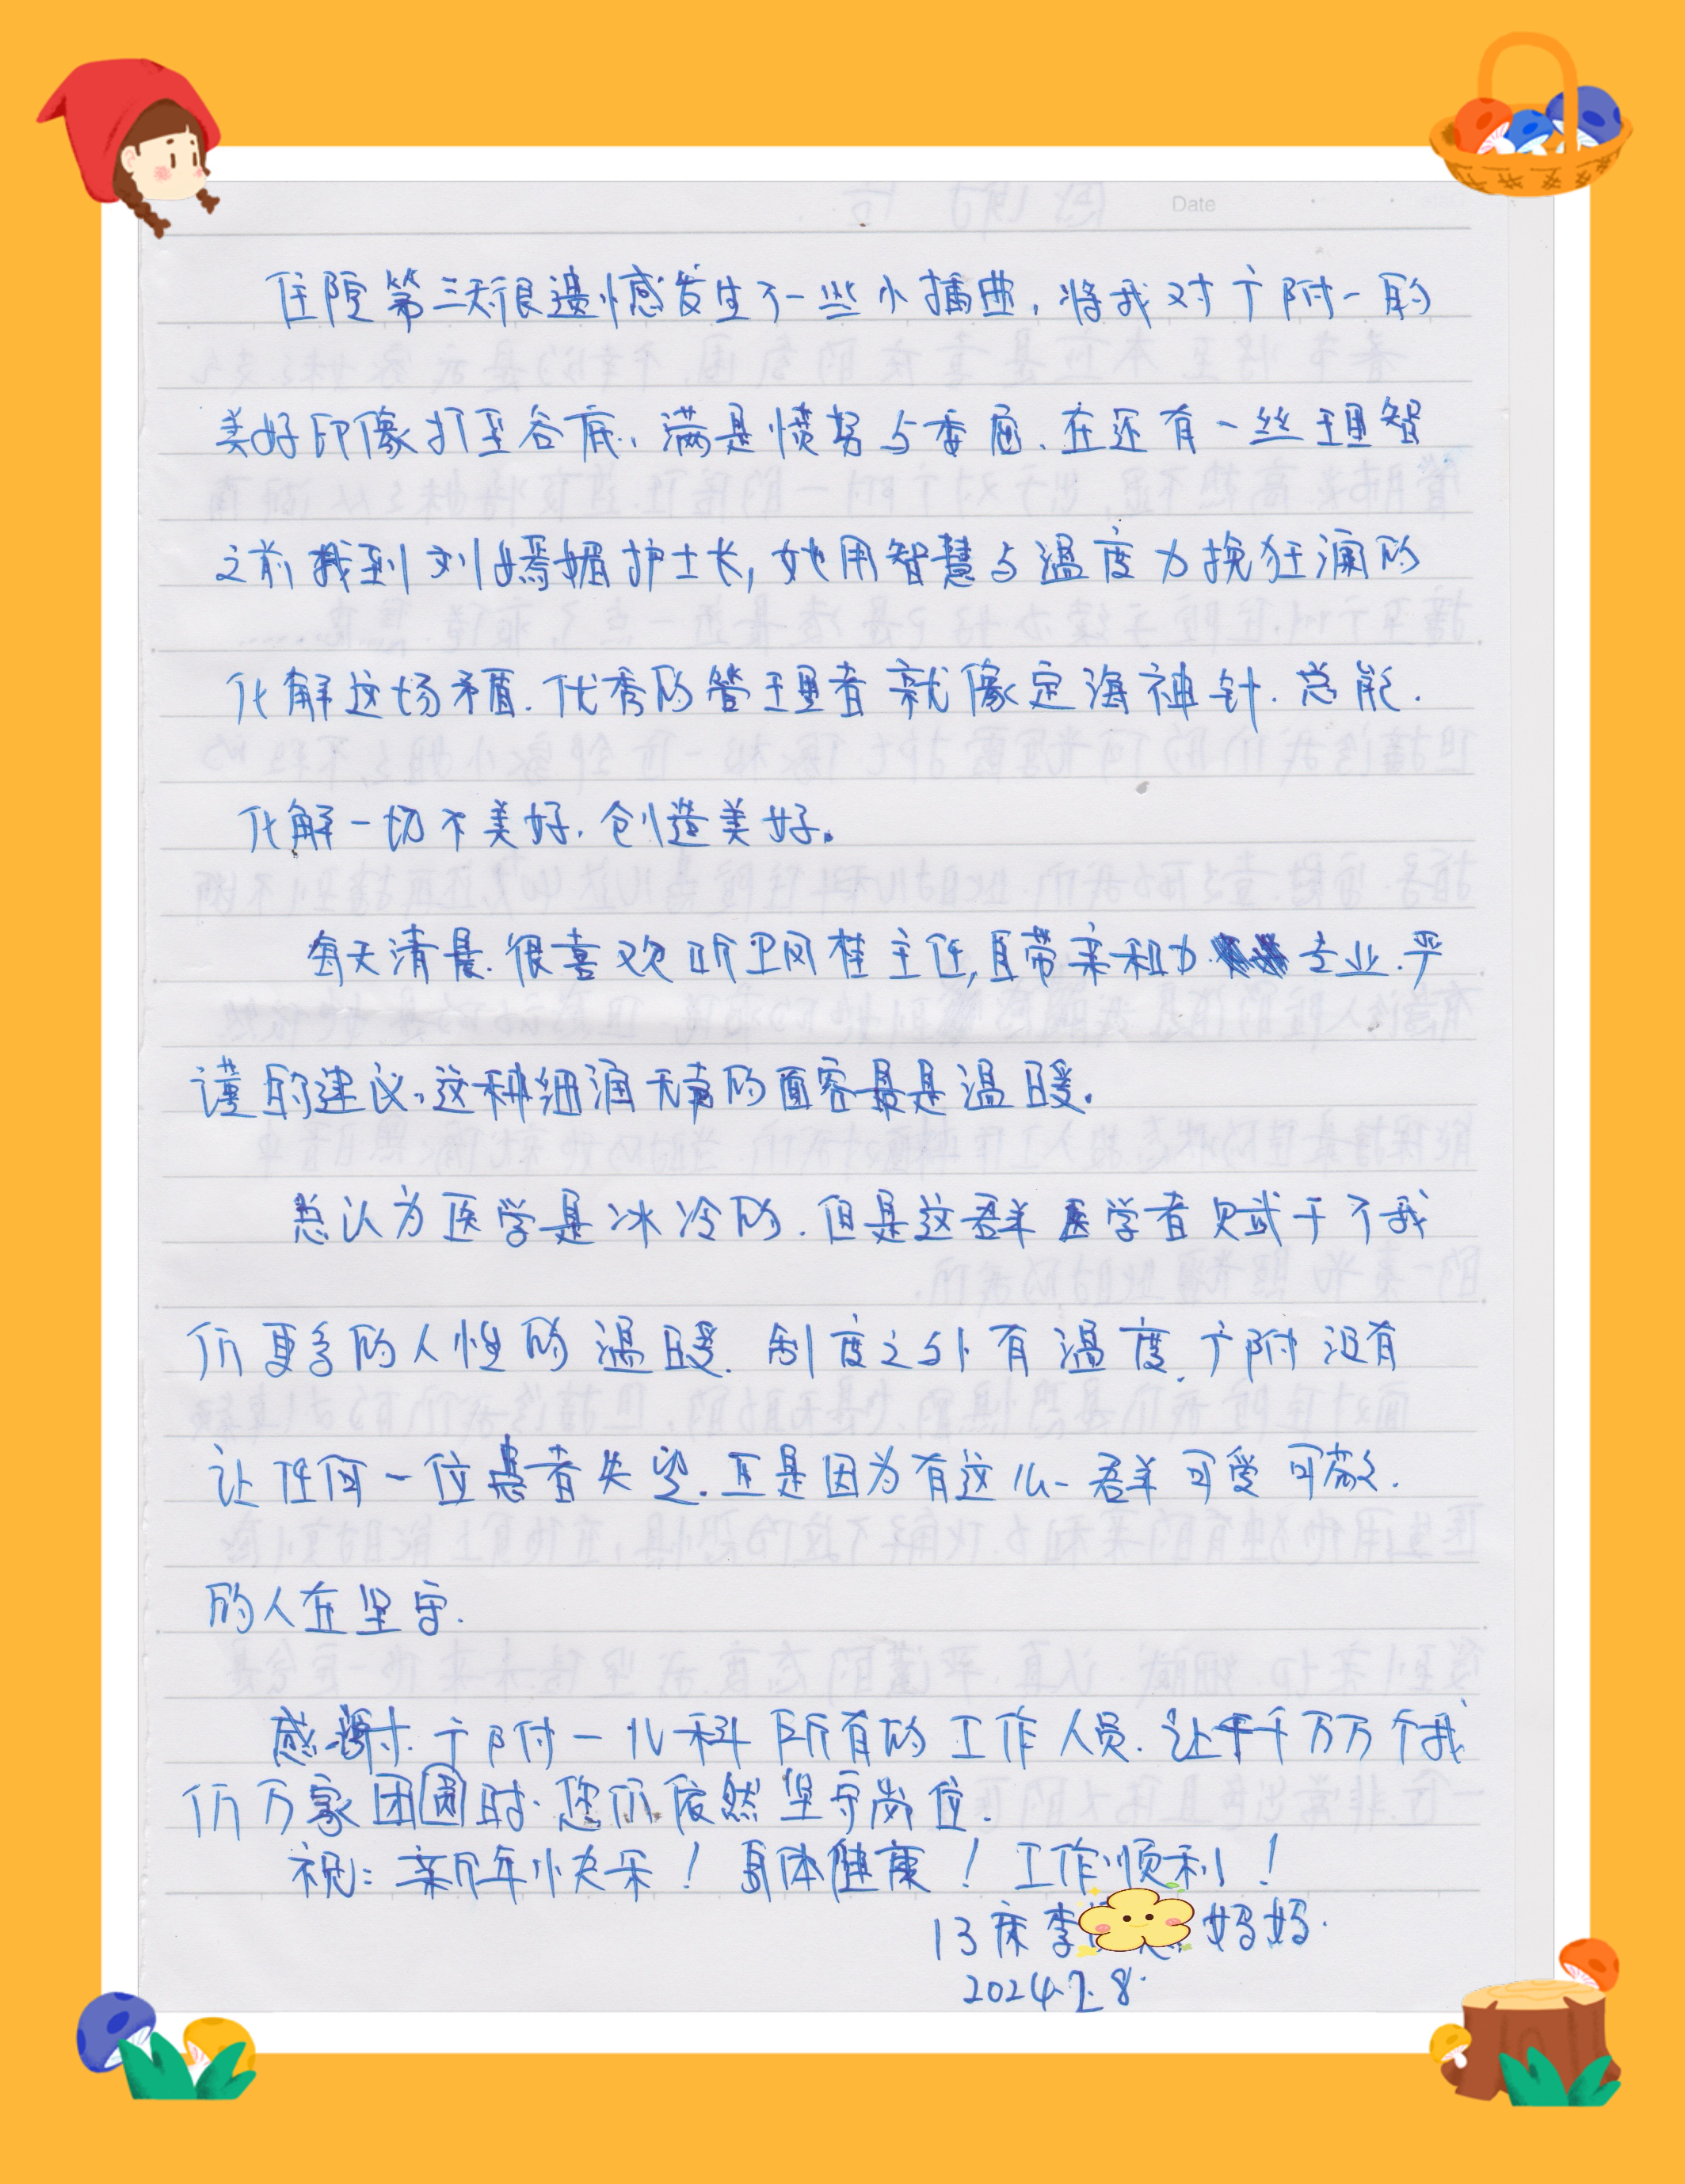 Date
住院第三天很遗憾发生了一些小插曲,将我对广附一的
美好印像打至谷底,满是愤努与委屈,在还有一丝理智
之前找到刘嫣媚护士长,她用智慧与温度力挽狂澜的
化解这场矛盾.优秀的管理者就像定海神针.总能.
化解一切不美好.创造美好。
每天清晨.很喜欢听卫凤桂主任,自带亲和力专业.严
谨的建议.这种细润无声的面容最是温暖.
总认为医学是冰冷的.但是这群医学者赋于了我
们更多的人性的温暖.制度之外有温度.广附没有
让任何一位患者失望.正是因为有这么一群可爱可敬.
的人在坚守.
感谢.广附一儿科所有的工作人员.让千千万万个我
们万家团圆时.您们依然坚守岗位.
祝:新年快乐!身体健康!工作顺利!
13床李 妈妈.
2024.2.8.